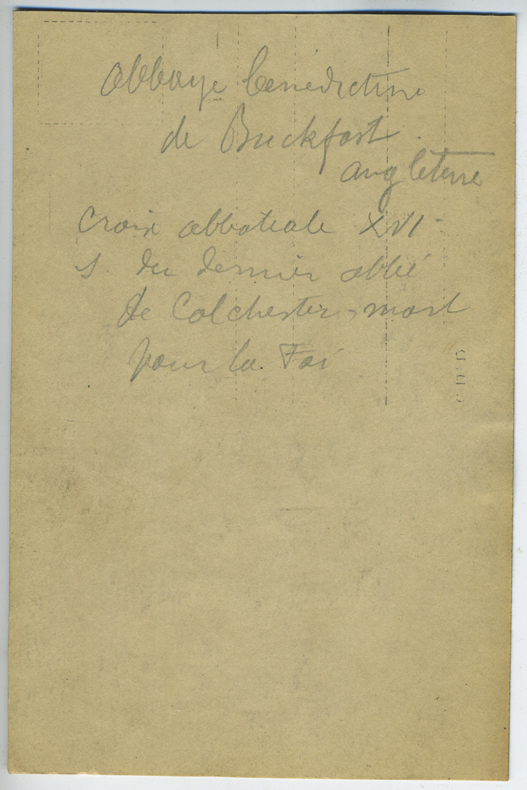 Abbaye bénédictine
de Buckfast.
Angleterre
Croix abbatiale XVI
s. du dernier abbé
de Colchester, mort
pour la Foi